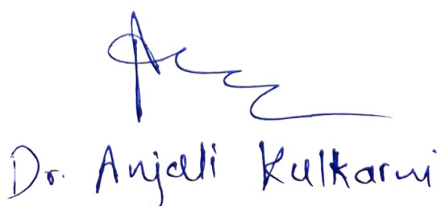 Dr. Anjali Kulkarni